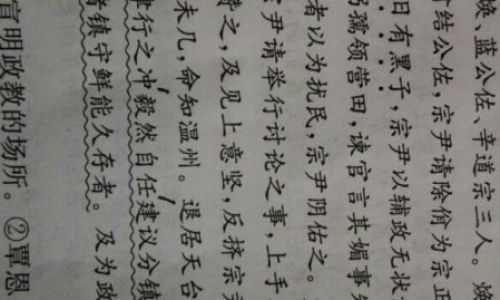 焕、蓝公佐、辛道宗三人。焕
结公佐,宗尹请除为宗正
日有黑子,宗尹以辅政无状
孺领营田,谏官言其媚事
者以为扰民,宗尹阴佑之。
尹请举行讨论之事,上手
赞之,及见上意坚,反挤宗
未几,命知温州。退居天台
行之冲毅然自任建议分镇
者镇守鲜能久存者。及为政
宣明政教的场所。②覃恩